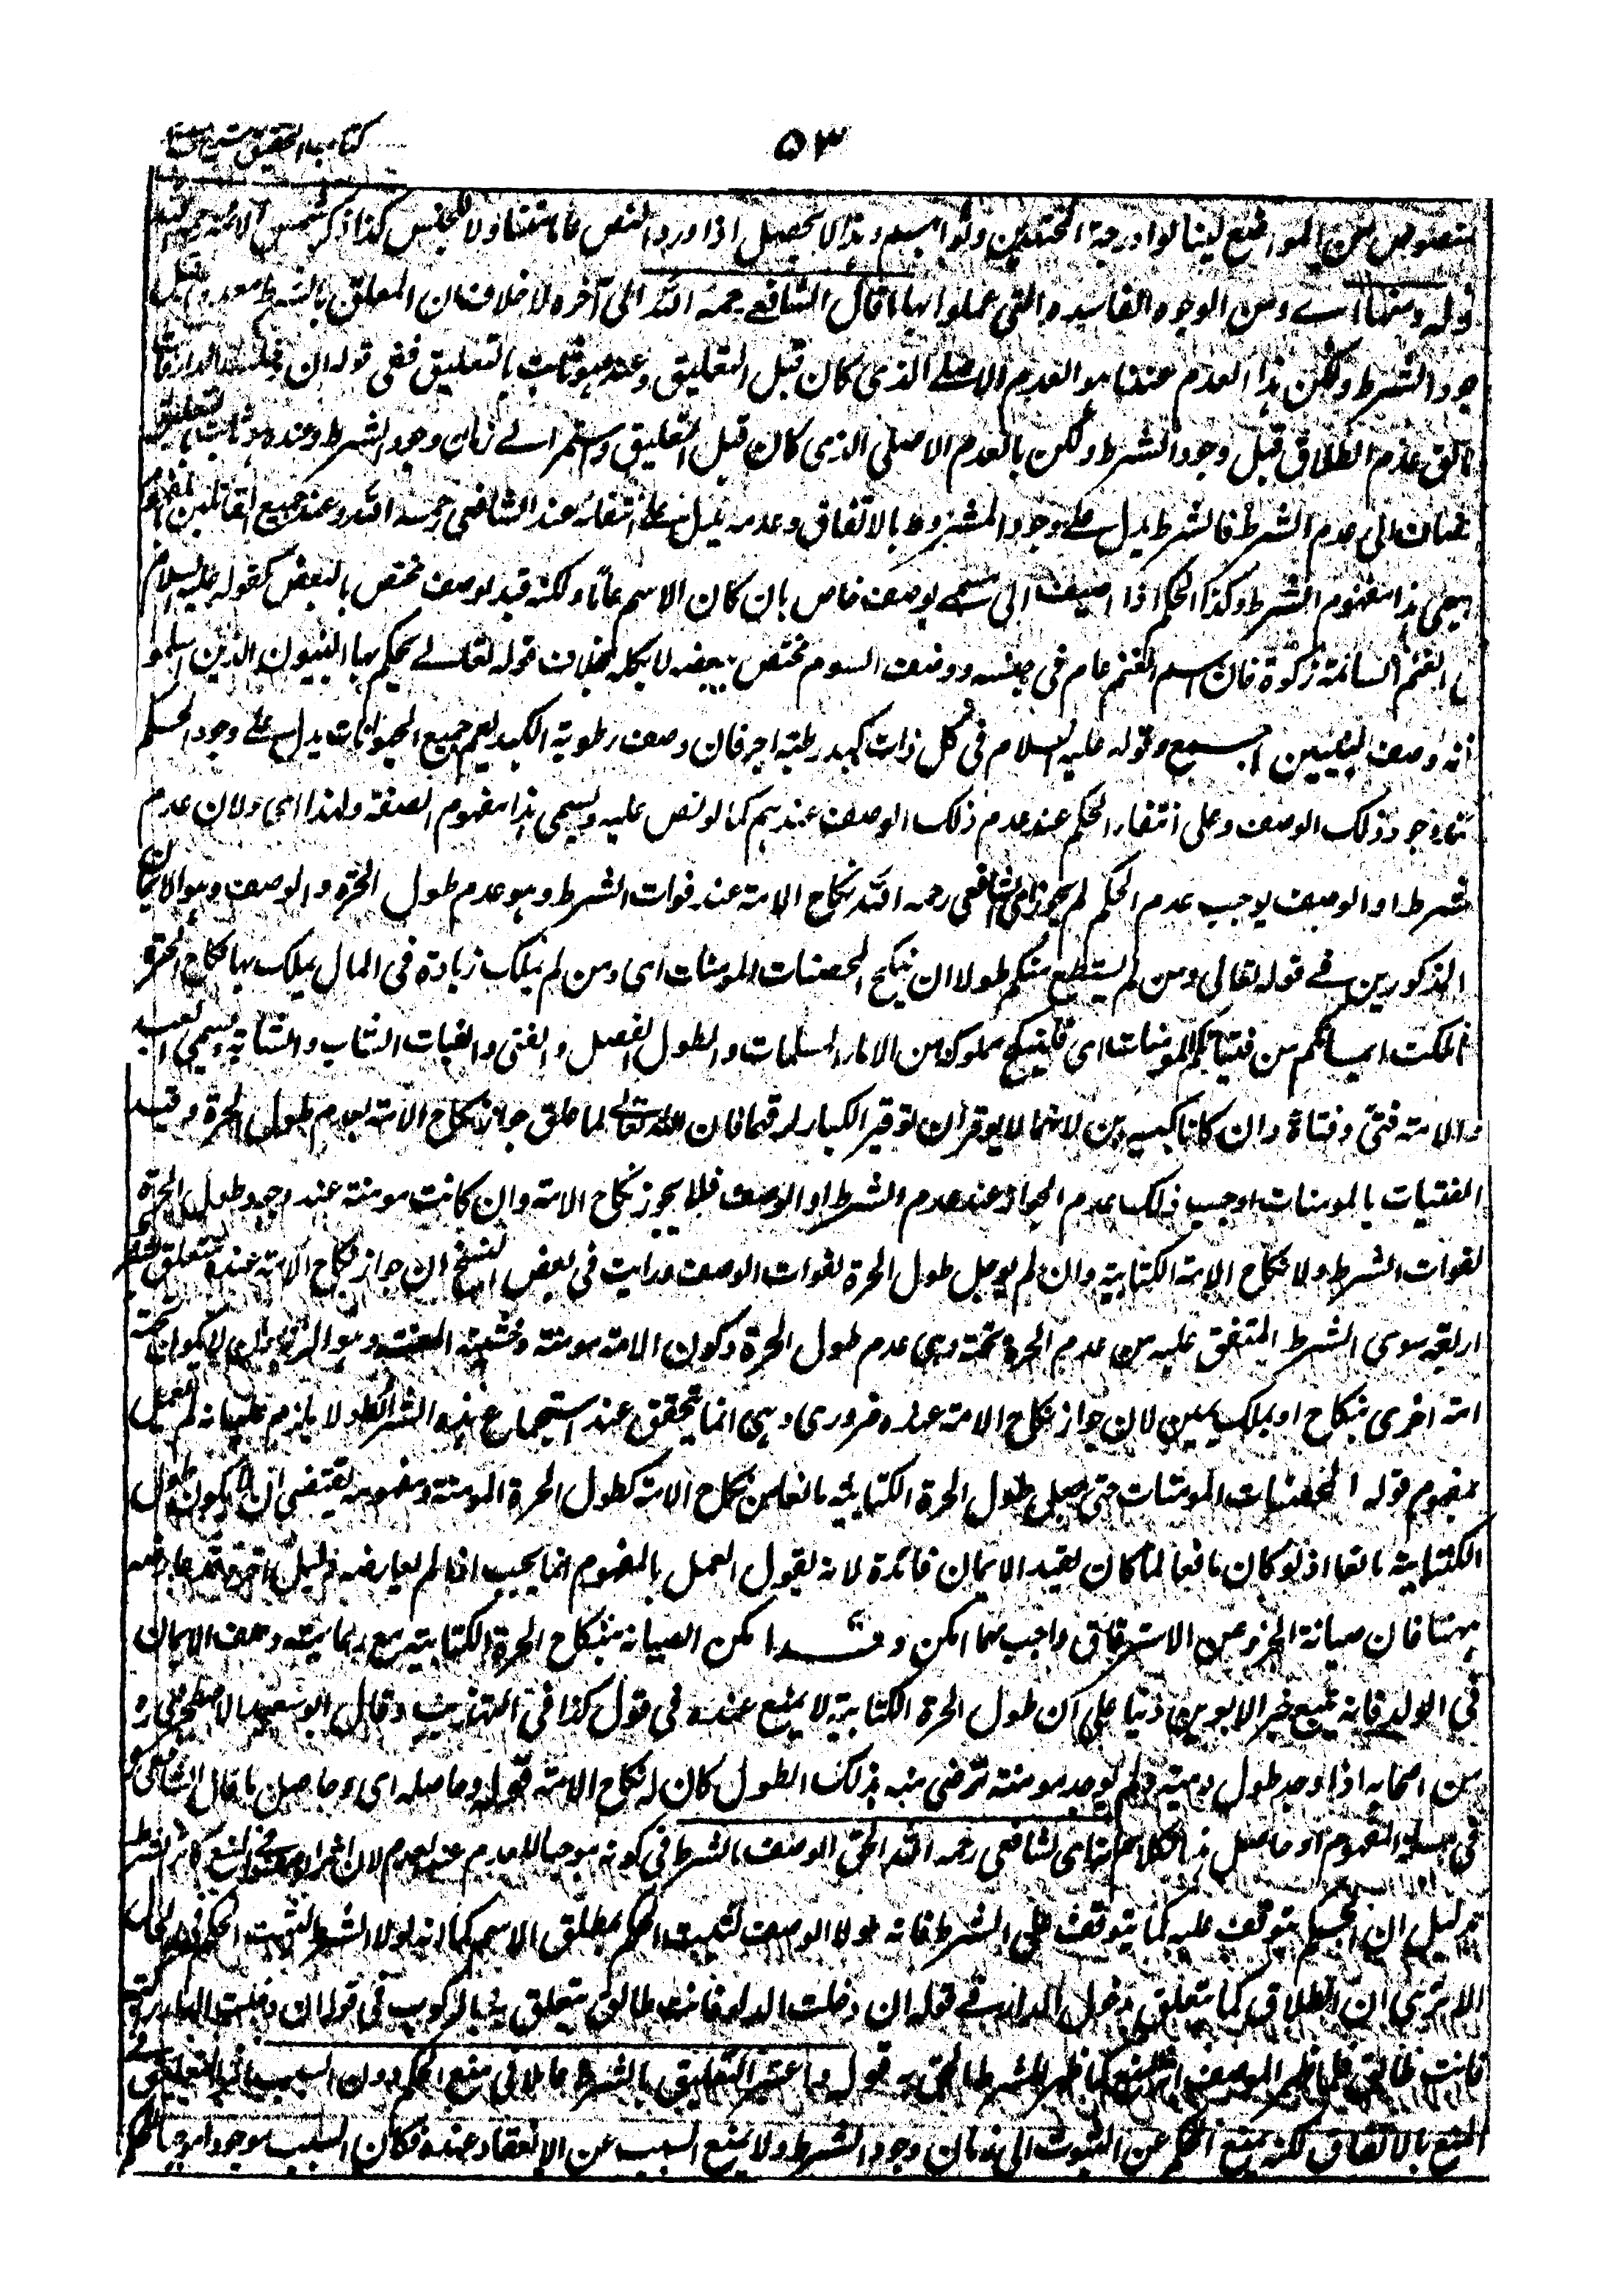 كتاب التحقيق شرح
٥٣
المنصوص من المواضع لينالوا درجة المجتهدين وثوابهم وهذا لا يحصل اذا ورد النص عاما متناولا للجنس كذا ذكر شمس الائمة رحمه الله
قوله ومنها اى ومن الوجوه الفاسدة التى عملوا بها ما قال الشافعى رحمه الله الى آخره لا خلاف ان المعلق بالشرط معدوم قبل
وجود الشرط ولكن هذا العدم عندنا هو العدم الاصلى الذى كان قبل التعليق وعنده هو ثابت بالتعليق ففى قوله ان دخلت الدار فانت
طالق عدم الطلاق قبل وجود الشرط ولكن بالعدم الاصلى الذى كان قبل التعليق واستمر الى زمان وجود الشرط وعنده هو ثابت بالتعليق
مضاف الى عدم الشرط فالشرط يدل على وجود المشروط بالاتفاق وعدمه يدل على انتفائه عند الشافعى رحمه الله وعند جميع القائلين بالمفهوم
ويسمى هذا مفهوم الشرط وكذا الحكم اذا اضيف الى مسمى بوصف خاص بان كان الاسم عاما ولكنه قيد بوصف مختص بالبعض كقوله عليه السلام
فى الغنم السائمة زكوة فان اسم الغنم عام فى جنسه ووصف السوم مختص ببعضه لا بكله بخلاف قوله تعالى يحكم بها النبيون الذين اسلموا
فانه وصف النبيين اجمع وقوله عليه السلام فى كل ذات كبد رطبة اجر فان وصف رطوبة الكبد يعم جميع الحيوانات يدل على وجود الحكم
عند وجود ذلك الوصف وعلى انتفاء الحكم عند عدم ذلك الوصف عندهم كما لو نص عليه ويسمى هذا مفهوم الصفة ولهذا اى ولان عدم
الشرط او الوصف يوجب عدم الحكم لم يجوز الشافعى رحمه الله نكاح الامة عند فوات الشرط وهو عدم طول الحرة والوصف وهو الايمان
المذكورين فى قوله تعالى ومن لم يستطع منكم طولا ان ينكح المحصنات المومنات اى ومن لم يملك زيادة فى المال يملك بها نكاح الحرة
فما ملكت ايمانكم من فتياتكم المومنات اى فلينكح مملوكة من الاماء المسلمات والطول الفضل والفتى والفتاة الشاب والشابة ويسمى العبد
والامة فتى وفتاة وان كانا كبيرين لانهما لا يوقران توقير الكبار لرقهما فان الله تعالى لما علق جواز نكاح الامة بعدم طول الحرة وقيد
الفتيات بالمومنات اوجب ذلك عدم الجواز عند عدم الشرط او الوصف فلا يجوز نكاح الامة وان كانت مومنة عند وجود طول الحرة
لفوات الشرط ولا نكاح الامة الكتابية وان لم يوجد طول الحرة لفوات الوصف ورايت فى بعض النسخ ان جواز نكاح الامة عنده متعلق بشروط
اربعة سوى الشرط المتفق عليه من عدم الحرة تحته وهى عدم طول الحرة وكون الامة مومنة وخشية العنت وهو الزنا وان لا يكون تحته
امة اخرى بنكاح او بملك يمين لان جواز نكاح الامة عنده ضرورى وهى انما تتحقق عند استجماع هذه الشرائط ولا يلزم عليه انه لم يعمل
بمفهوم قوله المحصنات المومنات حتى جعل طول الحرة الكتابية مانعا من نكاح الامة كطول الحرة المومنة ومفهومه يقتضى ان لا يكون طول
الكتابية مانعا اذ لو كان مانعا لما كان لقيد الايمان فائدة لانه يقول العمل بالمفهوم انما يجب اذا لم يعارضه دليل اقوى وقد عارضه
ههنا فان صيانة الجزء عن الاسترقاق واجب مهما امكن وقد امكن الصيانة بنكاح الحرة الكتابية مع رعاية وصف الايمان
فى الولد فانه يتبع خير الابوين دينا على ان طول الحرة الكتابية لا يمنع عنده فى قول كذا فى التهذيب وقال ابو سعيد الاصطخرى ره
من اصحابه اذا وجد طول ذمية ولم يوجد مومنة ترضى منه بذلك الطول كان له نكاح الامة قوله وحاصله اى وحاصل ما قال الشافعى ره
فى مسئلة المفهوم او حاصل هذا الكلام انه اى الشافعى رحمه الله الحق الوصف بالشرط فى كونه موجبا للعدم عند العدم لان اثره المنع كاثر الشرط
بدليل ان الحكم يتوقف عليه كما يتوقف على الشرط فانه لولا الوصف لثبت الحكم بمطلق الاسم كما انه لولا الشرط لثبت الحكم فى الحال
الا ترى ان الطلاق كما يتعلق بدخول الدار فى قوله ان دخلت الدار فانت طالق يتعلق بالركوب فى قوله ان دخلت الدار راكبة
فانت طالق فلما ظهر للوصف اثر المنع كما ظهر للشرط الحق به قوله واعتبر التعليق بالشرط عاملا فى منع الحكم دون السبب اثر التعليق فى
المنع بالاتفاق لكنه يمنع الحكم عن الثبوت الى زمان وجود الشرط ولا يمنع السبب عن الانعقاد عنده فكان السبب موجودا موجبا للحكم